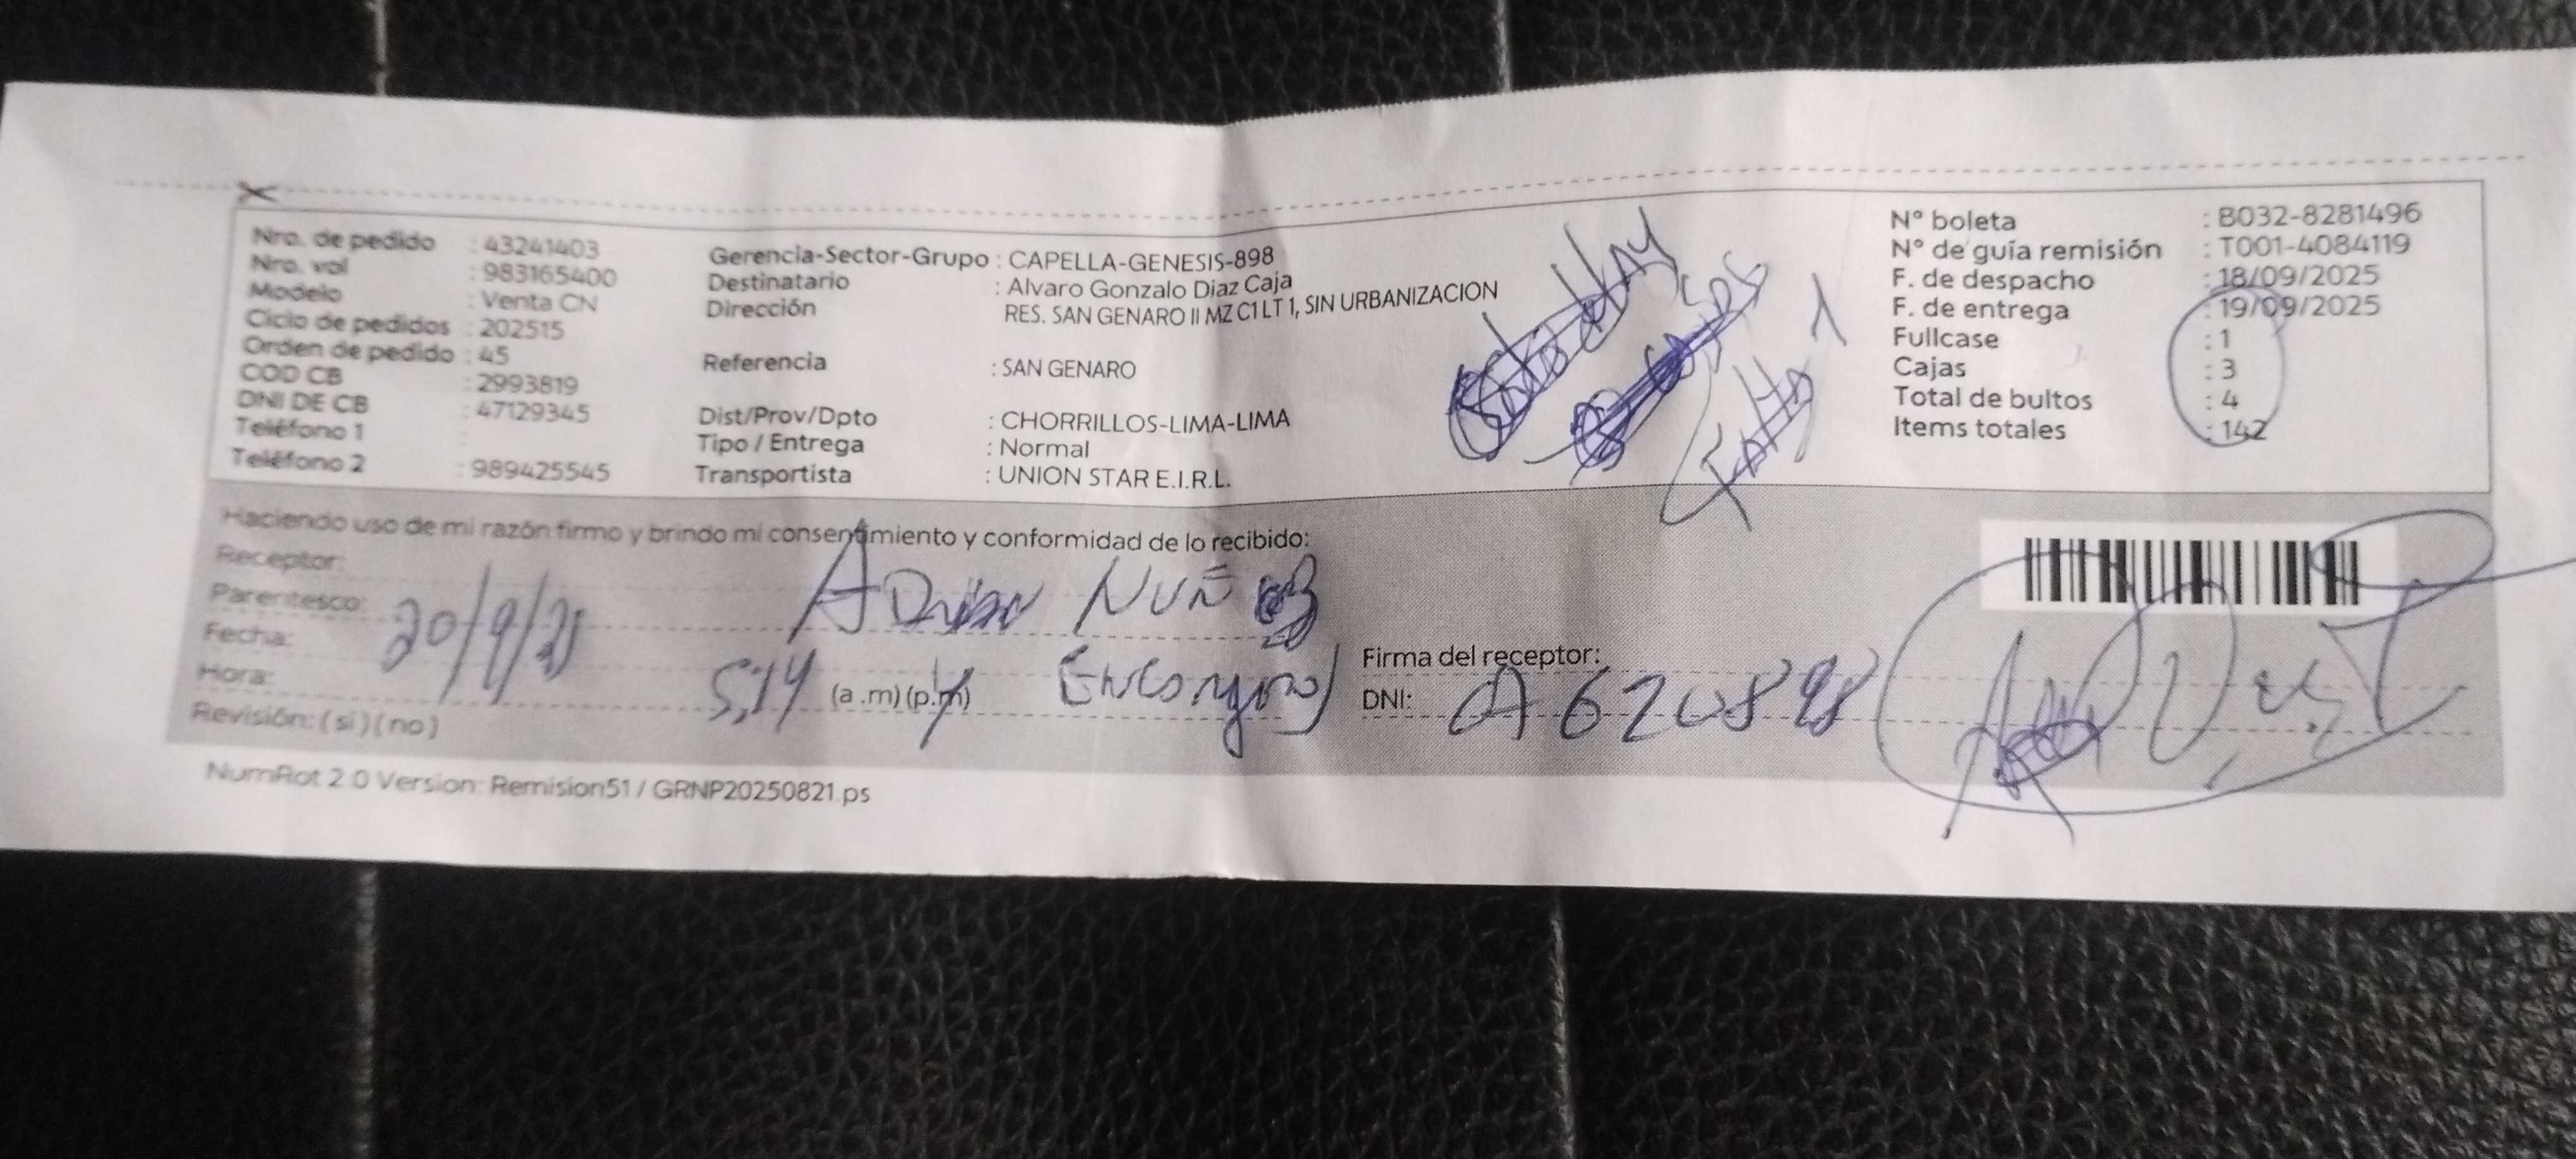 Nro. de pedido : 43241403
Nro. vol : 983165400
Modelo : Venta CN
Ciclo de pedidos : 202515
Orden de pedido : 45
COD CB : 2993819
DNI DE CB : 47129345
Teléfono 1 :
Teléfono 2 : 989425545
Gerencia-Sector-Grupo : CAPELLA-GENESIS-898
Destinatario : Alvaro Gonzalo Diaz Caja
Dirección : RES. SAN GENARO II MZ C1 LT 1, SIN URBANIZACION
Referencia : SAN GENARO
Dist/Prov/Dpto : CHORRILLOS-LIMA-LIMA
Tipo / Entrega : Normal
Transportista : UNION STAR E.I.R.L.
Falto 1
N° boleta : B032-8281496
N° de guía remisión : T001-4084119
F. de despacho : 18/09/2025
F. de entrega : 19/09/2025
Fullcase : 1
Cajas : 3
Total de bultos : 4
Items totales : 142
Haciendo uso de mi razón firmo y brindo mi consentimiento y conformidad de lo recibido:
Receptor: Adrian Nuñez
Parentesco: Encargado
Fecha: 20/9/25
Hora: 5:14 (a.m) (p.m)
Revisión: ( si ) ( no )
Firma del receptor:
DNI: A620898
NumRot 2.0 Version: Remision51 / GRNP20250821.ps